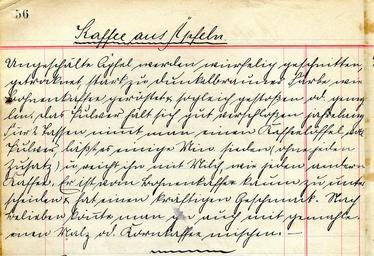 56
Kaffee aus Äpfeln
Ungeschälte Äpfel werden würfelig geschnitten,
getrocknet, stark zu dunkelbrauner Farbe wie
Bohnenkaffee geröstet, sogleich gestoßen od. gemah
len, das Pulver hält sich gut verschloßen jahrelang
Für 2 Tassen nimt man einen Kaffeelöffel voll
Pulver läßt es einige Min. sieden (ohne jeden
Zusatz) u. reicht ihn mit Milch, wie jeden andern
Kaffee. Er ist vom Bohnenkaffee kaum zu unter
scheiden u. hat einen kräftigen Geschmak. Nach
belieben könte man auch mit gemahle
enen Malz od. Kornkaffee mischen. —